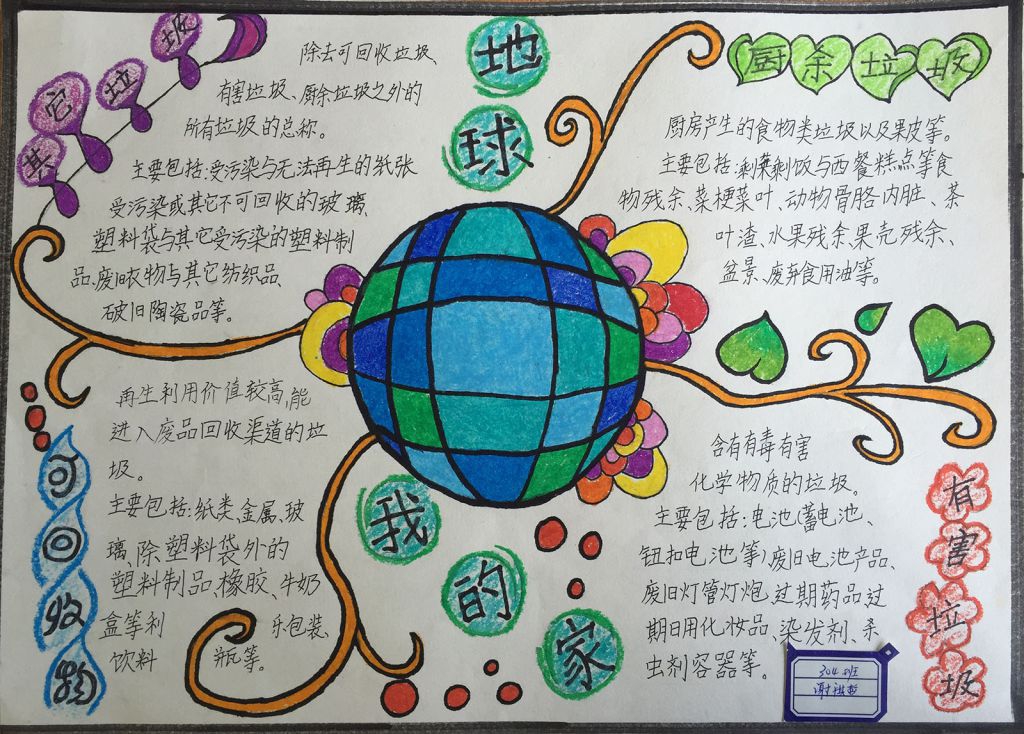 地
球
我
的
家
其它垃圾
除去可回收垃圾、
有害垃圾、厨余垃圾之外的
所有垃圾的总称。
主要包括:受污染与无法再生的纸张
受污染或其它不可回收的玻璃、
塑料袋与其它受污染的塑料制
品、废旧衣物与其它纺织品、
破旧陶瓷品等。
厨余垃圾
厨房产生的食物类垃圾以及果皮等。
主要包括:剩菜剩饭与西餐糕点等食
物残余、菜梗菜叶、动物骨胳内脏、茶
叶渣、水果残余、果壳残余、
盆景、废弃食用油等。
可
回
收
物
再生利用价值较高,能
进入废品回收渠道的垃
圾。
主要包括:纸类、金属、玻
璃、除塑料袋外的
塑料制品、橡胶、牛奶
盒等利 乐包装、
饮料 瓶等。
有
害
垃
圾
含有有毒有害
化学物质的垃圾。
主要包括:电池(蓄电池、
钮扣电池等)废旧电池产品、
废旧灯管灯炮、过期药品、过
期日用化妆品、染发剂、杀
虫剂容器等。
304班
谢